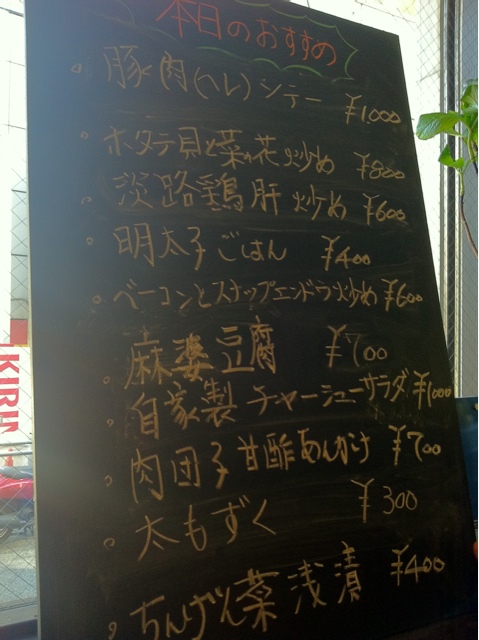 本日のおすすめ
豚肉(ヘレ)シチー ¥1000
ホタテ貝と菜の花炒め ¥800
淡路鶏肝炒め ¥600
明太子ごはん ¥400
ベーコンとスナップエンドウ炒め ¥600
麻婆豆腐 ¥700
自家製チャーシューサラダ ¥1000
肉団子甘酢あんかけ ¥700
太もずく ¥300
ちんげん菜浅漬 ¥400
KIRIN